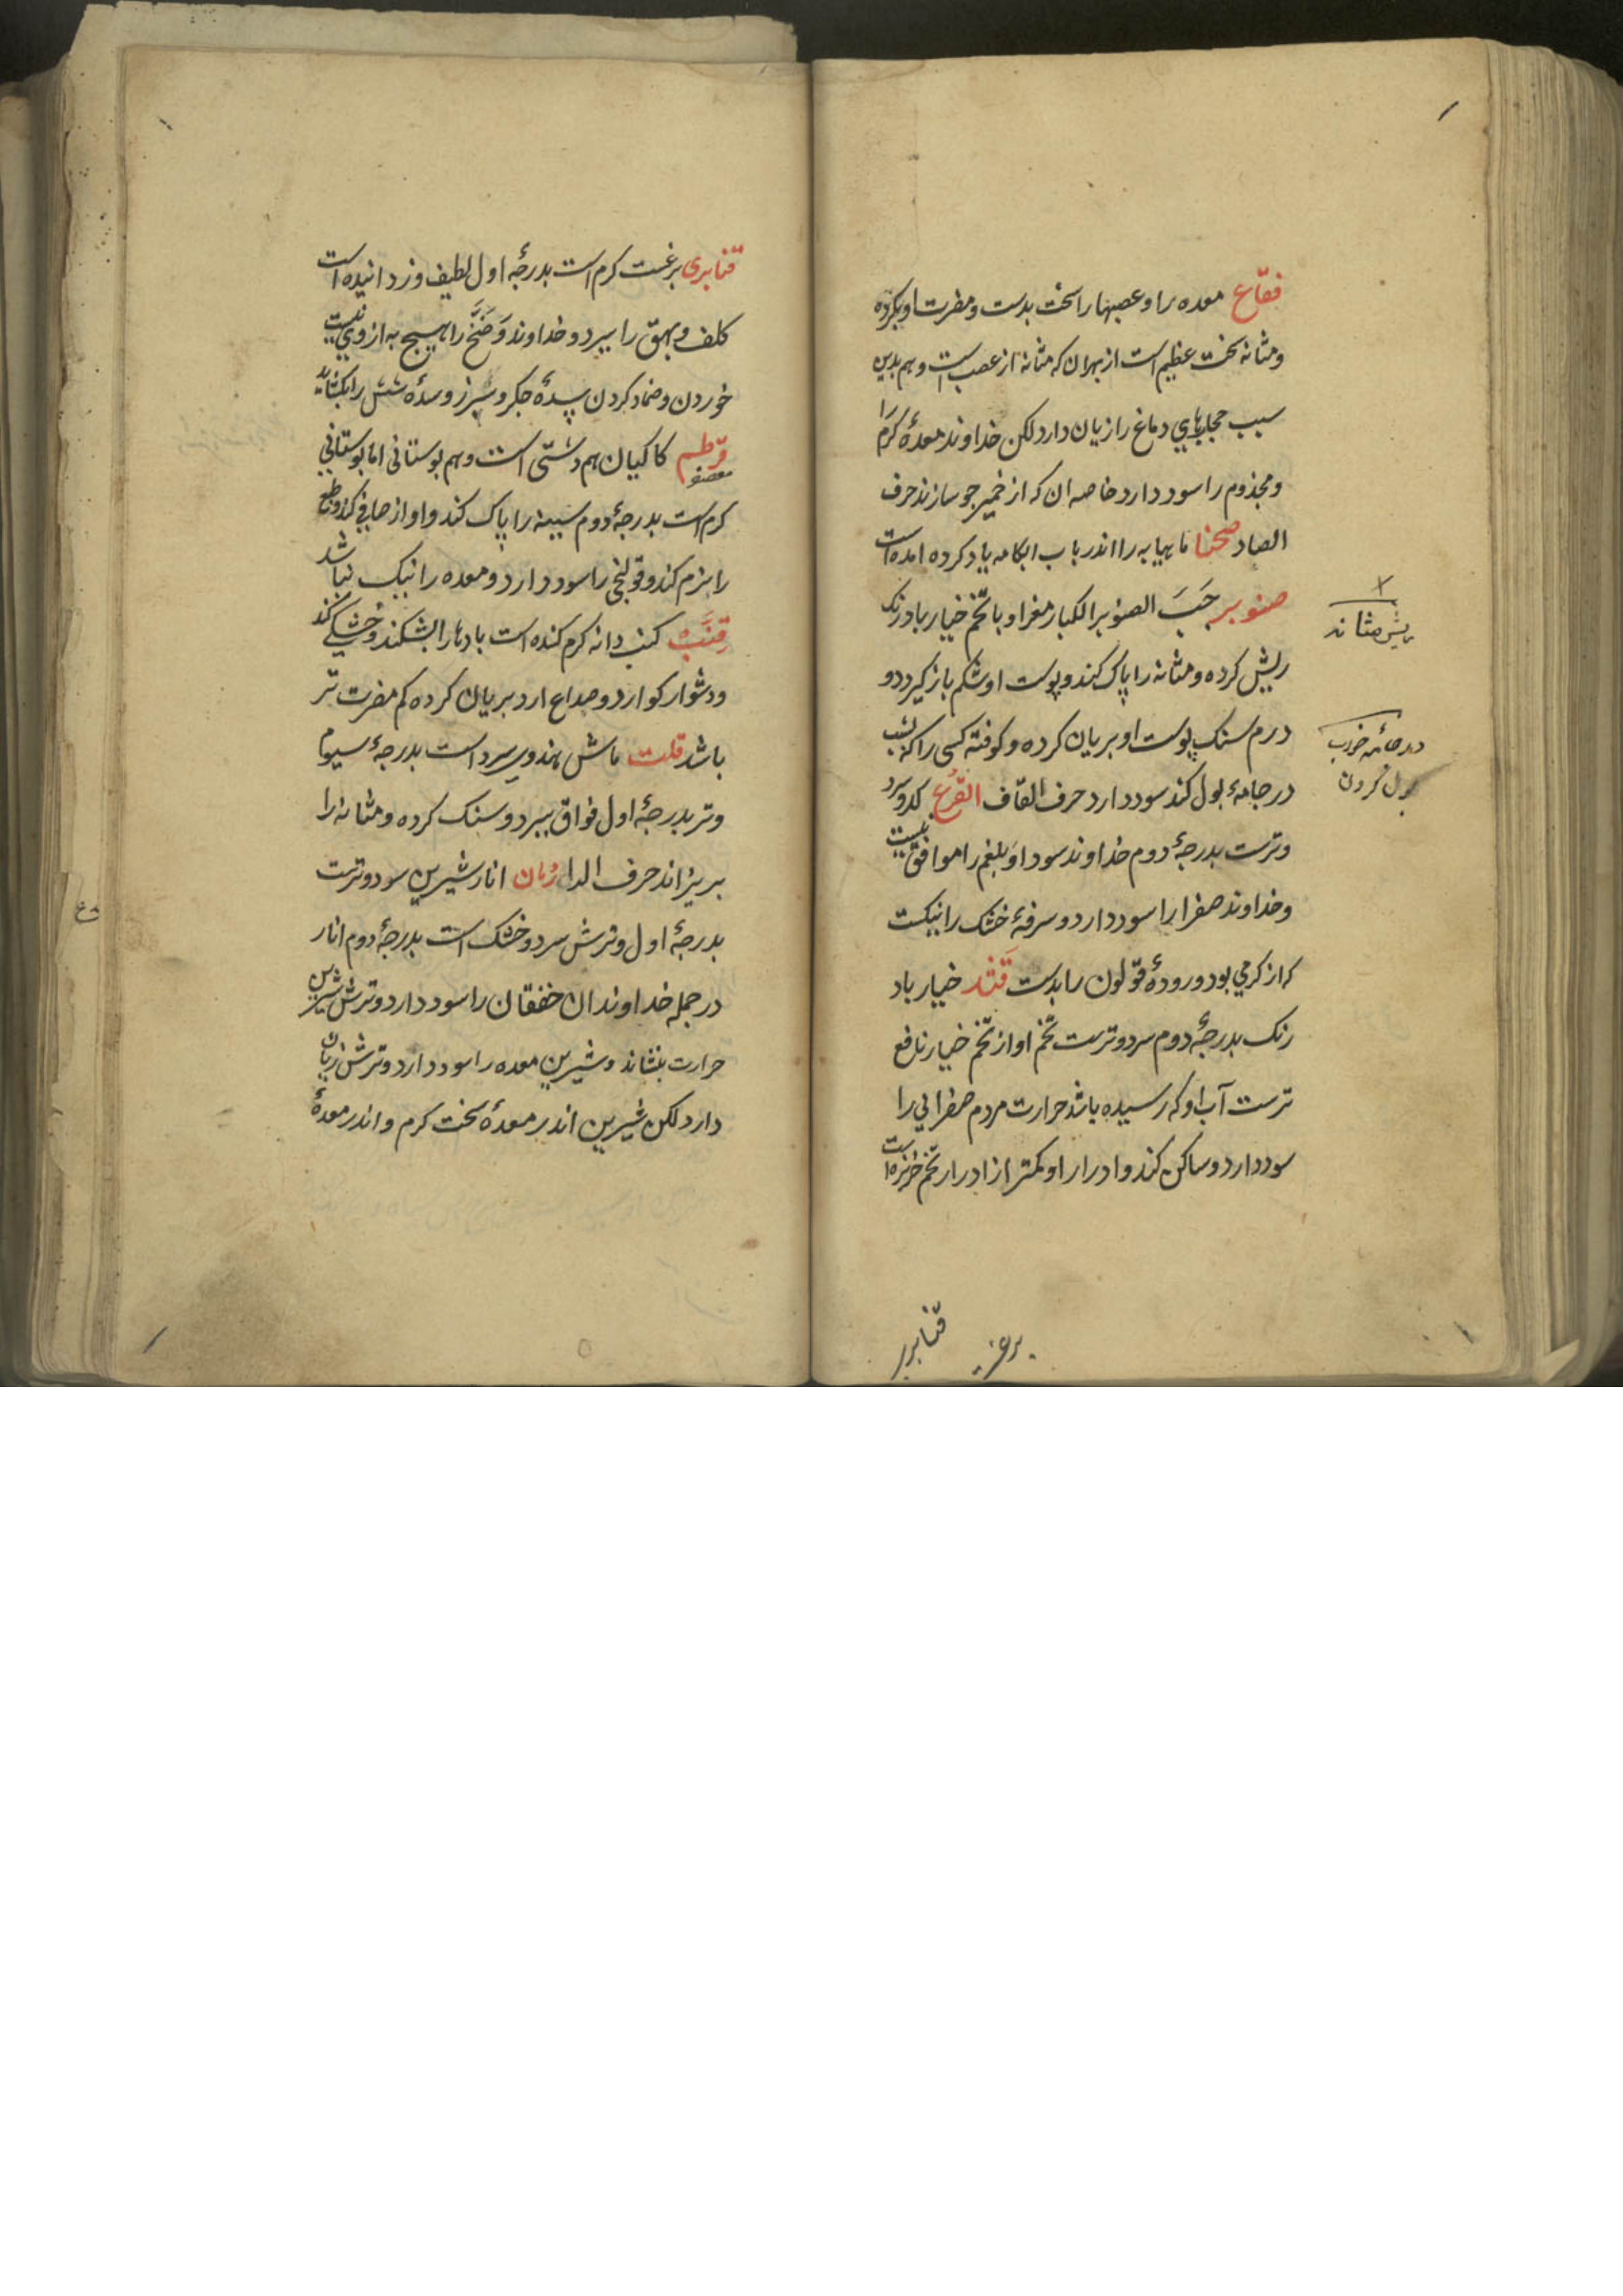 فقّاع معده را و عصبها را سخت بدست و مضرت او بكرده
و مثانه سخت عظيم است از بهر ان كه مثانه از عصب است و هم بدين
سبب حجابهاي دماغ را زيان دارد لكن خداوند معدۀ كرم را
و مجذوم را سود دارد خاصه ان كه از خمير جو سازند حرف
الصاد صحنا ماهيابه را اندر باب ابكامه ياد كرده امده است
صنوبر حَبَ الصنوبر الكبار مغز او با تخم خيار بادرنك
ريش كرده و مثانه را پاك كند و پوست او شكم باز كيرد دو
درم سنك پوست او بريان كرده و كوفته كسى را كه بشب
در جامۀ بول كند سود دارد حرف القاف القرع كدو سرد
و ترست بدرجۀ دوم خداوند سودا و بلغم را موافق نيست
و خداوند صفرا را سود دارد و سرفۀ خشك را نيكست
كه از كرمي بود و رودۀ قولون را بدست قَثد خيار باد
رنك بدرجۀ دوم سرد و ترست تخم او از تخم خيار نافع
ترست آب او كه رسيده باشد حرارت مردم صفرايي را
سود دارد و ساكن كند و ادرار او كمتر از ادرار تخم خربزه است
ريش مثانه
در جامه خواب
بول كردن
قنابرى
قنابرى برغست كرم است بدرجۀ اول لطيف و زدانيده است
كلف و بهق را ببرد و خداوند وَضَح را هيچ به از وي نيست
خوردن و ضماد كردن سدۀ جكر و سپرز و سدۀ شش را بكشايد
قرطم كاكيان هم دشتى است و هم بوستانى اما بوستاني
معصفر
كرم است بدرجۀ دوم سينه را پاك كند و اواز صافي كند و طبع
را نرم كند و قولنج را سود دارد و معده را نيك نباشد
قِنَّب كنب دانه كرم كننده است بادها را بشكند و خشكي كند
و دشوار كوارد و صداع ارد بريان كرده كم مضرت تر
باشد قلت ماش هندوي سرد است بدرجۀ سيوم
و تر بدرجۀ اول فواق ببرد و سنك كرده و مثانه را
بريزاند حرف الرا رُمان انار شيرين سود و ترست
بدرجۀ اول و ترش سرد و خشك است بدرجۀ دوم انار
در جمله خداوندان خفقان را سود دارد و ترش شيرين
حرارت بنشاند و شيرين معده را سود دارد و ترش زيان
دارد لكن شيرين اندر معدۀ سخت كرم و اندر معدۀ